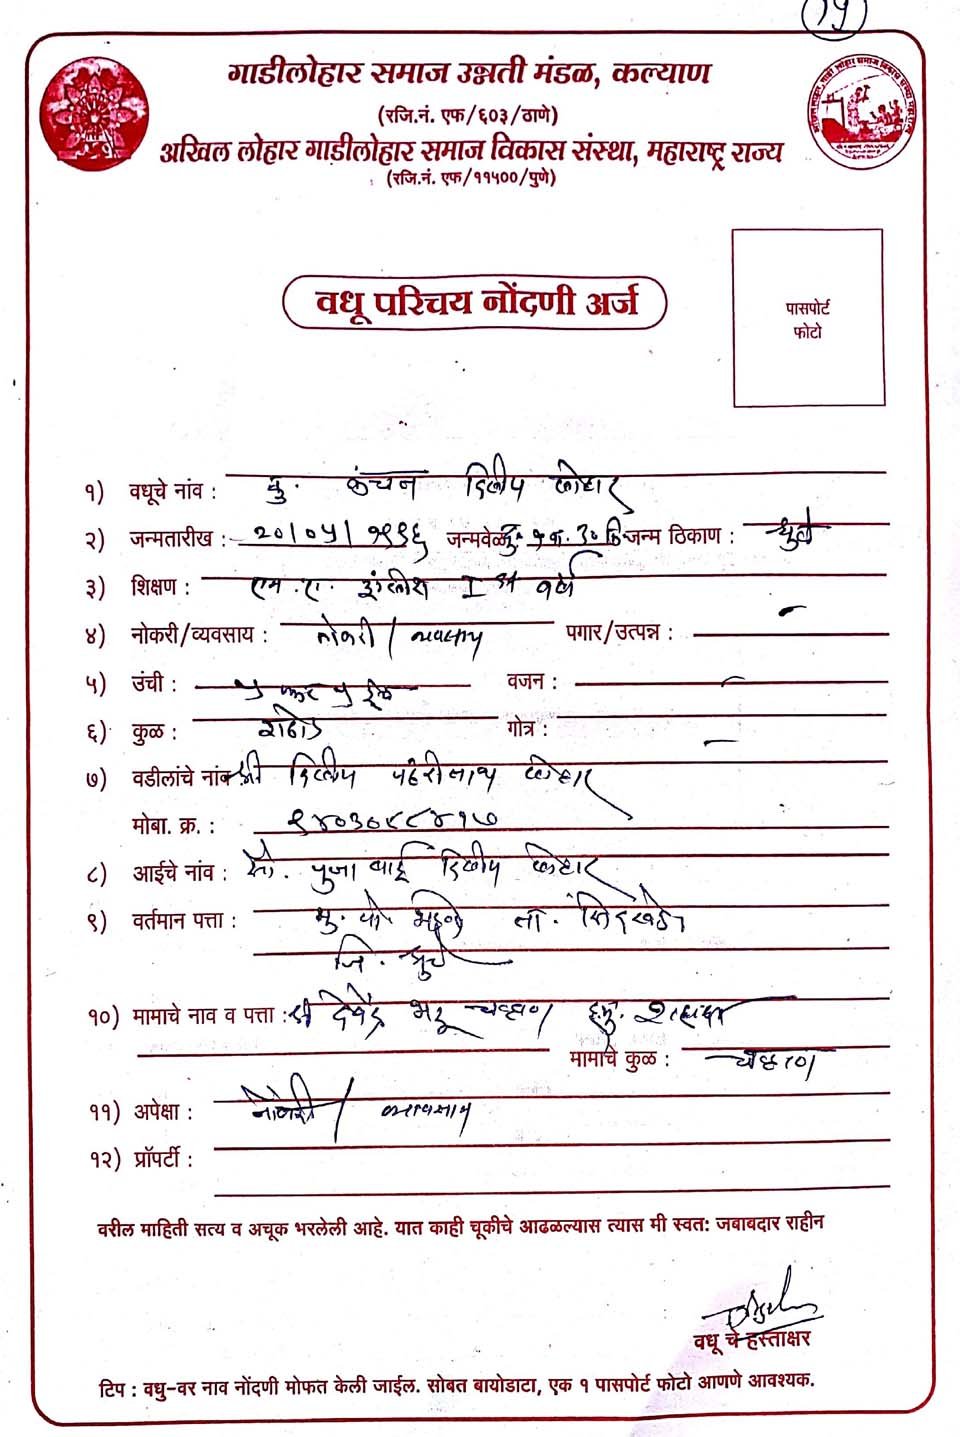 गाडीलोहार समाज उन्नती मंडळ, कल्याण
(रजि.नं. एफ/६०३/ठाणे)
अखिल लोहार गाडीलोहार समाज विकास संस्था, महाराष्ट्र राज्य
(रजि.नं. एफ/११५००/पुणे)
पासपोर्ट
फोटो
वधू परिचय नोंदणी अर्ज
१) वधूचे नांव : कु. कंचन दिलीप लोहार
२) जन्मतारीख : २०/०५/१९९६ जन्मवेळ जन्म ठिकाण : धुळे
३) शिक्षण : एम.ए. इंग्लीश I वर्ष
४) नोकरी/व्यवसाय : नोकरी/व्यवसाय पगार/उत्पन्न : -
५) उंची : ५ फुट ५ इंच वजन : -
६) कुळ : राठोड गोत्र : -
७) वडीलांचे नांव श्री दिलीप पंढरीनाथ लोहार
मोबा. क्र. :
८) आईचे नांव : सौ. पुजाबाई दिलीप लोहार
९) वर्तमान पत्ता : मु. पो. ता. शिंदखेडा
जि. धुळे
१०) मामाचे नाव व पत्ता : श्री चव्हाण ह.मु. शहादा
मामाचे कुळ : चव्हाण
११) अपेक्षा : नोकरी/व्यवसाय
१२) प्रॉपर्टी :
वरील माहिती सत्य व अचूक भरलेली आहे. यात काही चूकीचे आढळल्यास त्यास मी स्वत: जबाबदार राहीन
वधू चे हस्ताक्षर
टिप : वधु-वर नाव नोंदणी मोफत केली जाईल. सोबत बायोडाटा, एक १ पासपोर्ट फोटो आणणे आवश्यक.